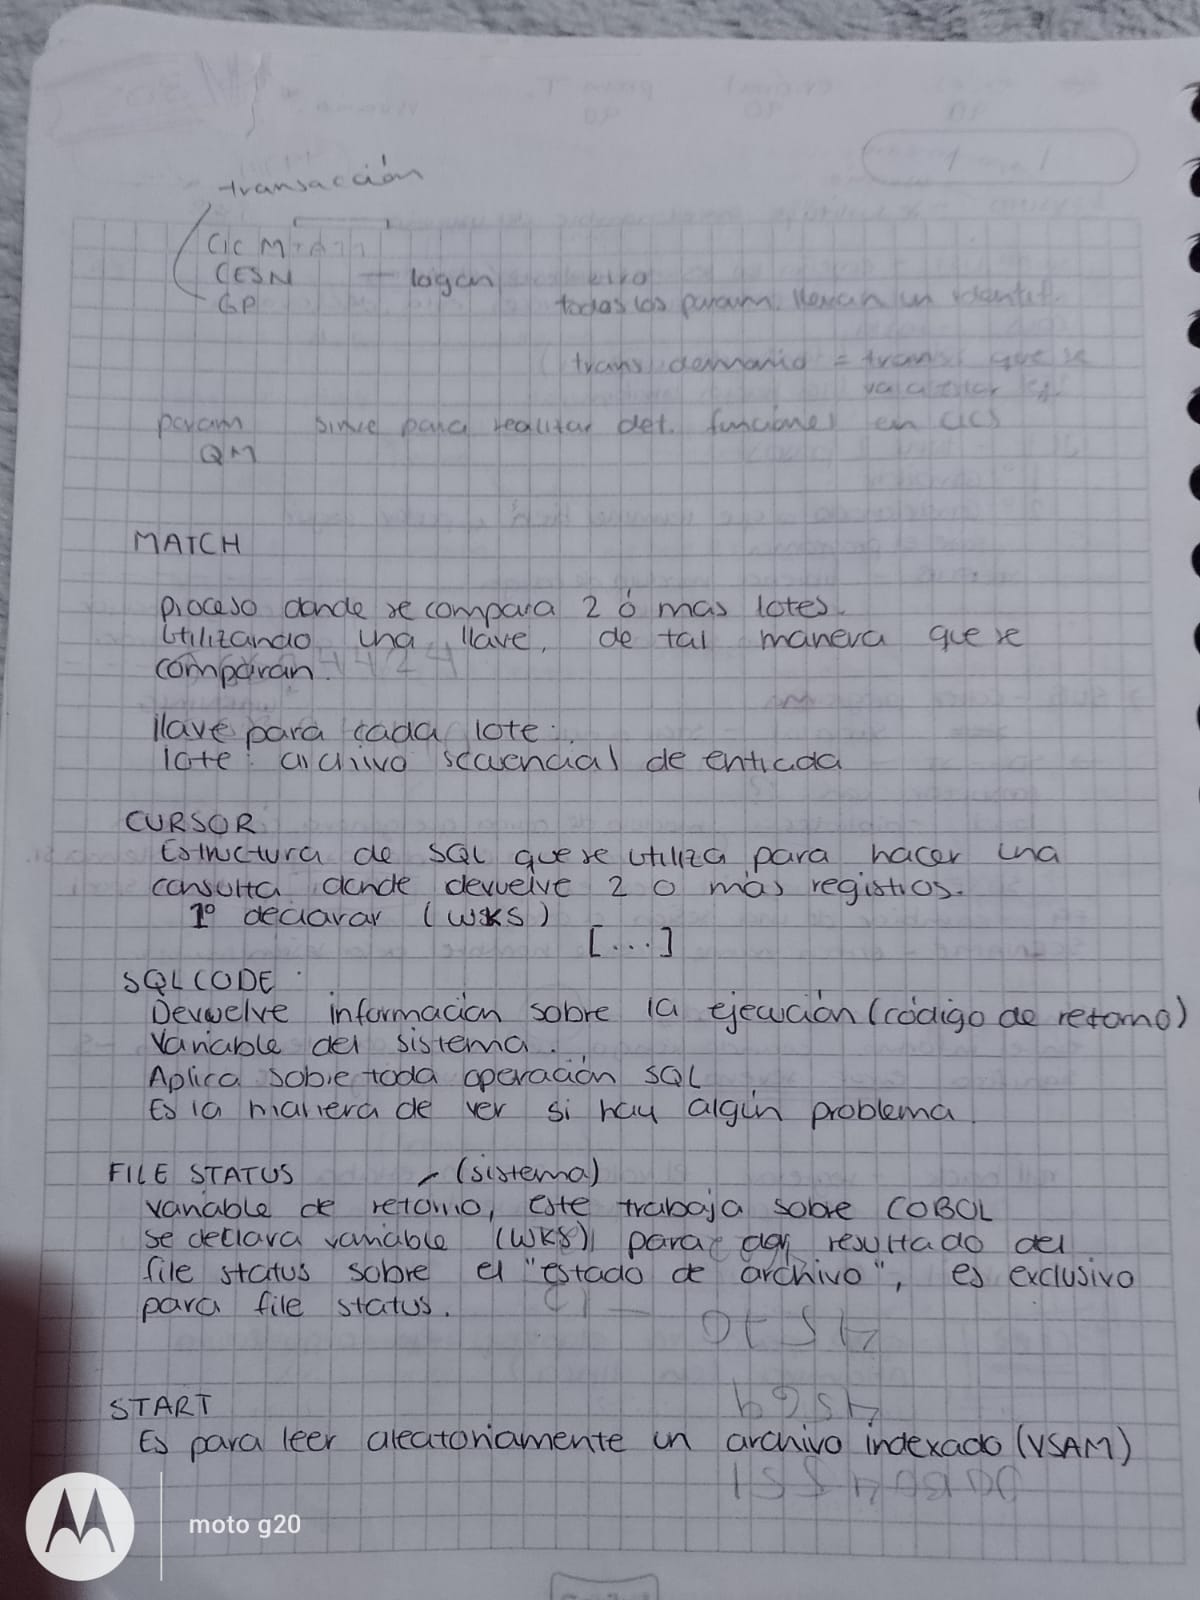 transacción
CICM
CESN — logon
GP todos los param. llevan un identif.
trans demanio = trans que se
va a
param sirve para realizar det. funciones en CICS
QM
MATCH
Proceso donde se compara 2 ó mas lotes.
Utilizando una llave, de tal manera que se
comparan.
llave para cada lote:
lote: archivo secuencial de entrada
CURSOR
Estructura de SQL que se utiliza para hacer una
consulta donde devuelve 2 o más registros.
1º declarar (WKS)
[...]
SQLCODE
Devuelve información sobre la ejecución (código de retorno)
Variable del sistema.
Aplica sobre toda operación SQL
Es la manera de ver si hay algún problema
FILE STATUS (sistema)
variable de retorno, este trabaja sobre COBOL
se declara variable (WKS) para dar resultado del
file status sobre el "estado de archivo", es exclusivo
para file status.
START
Es para leer aleatoriamente un archivo indexado (VSAM)
moto g20